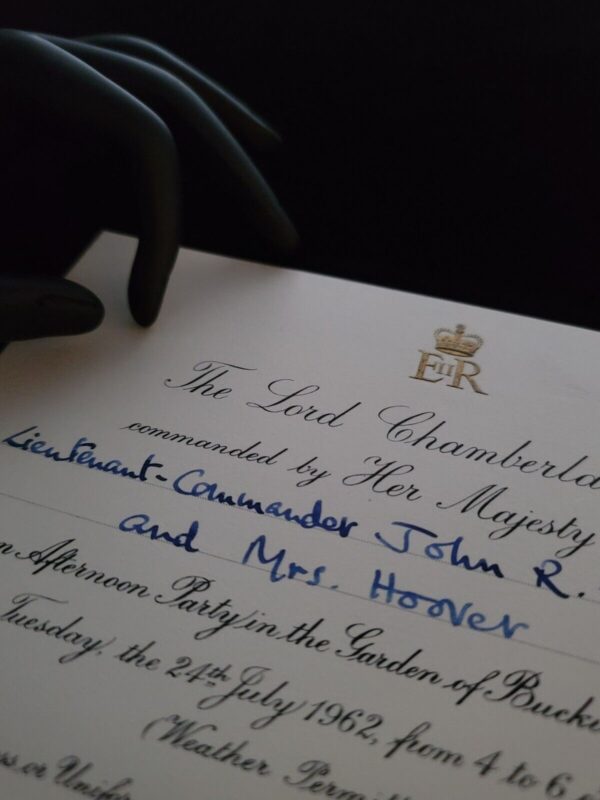 EIIR
The Lord Chamberla
commanded by Her Majesty
Lieutenant-Commander John R.
and Mrs. Hoover
n Afternoon Party in the Garden of Bucki
Tuesday, the 24th July 1962, from 4 to 6
(Weather Perm
ss or Unifor